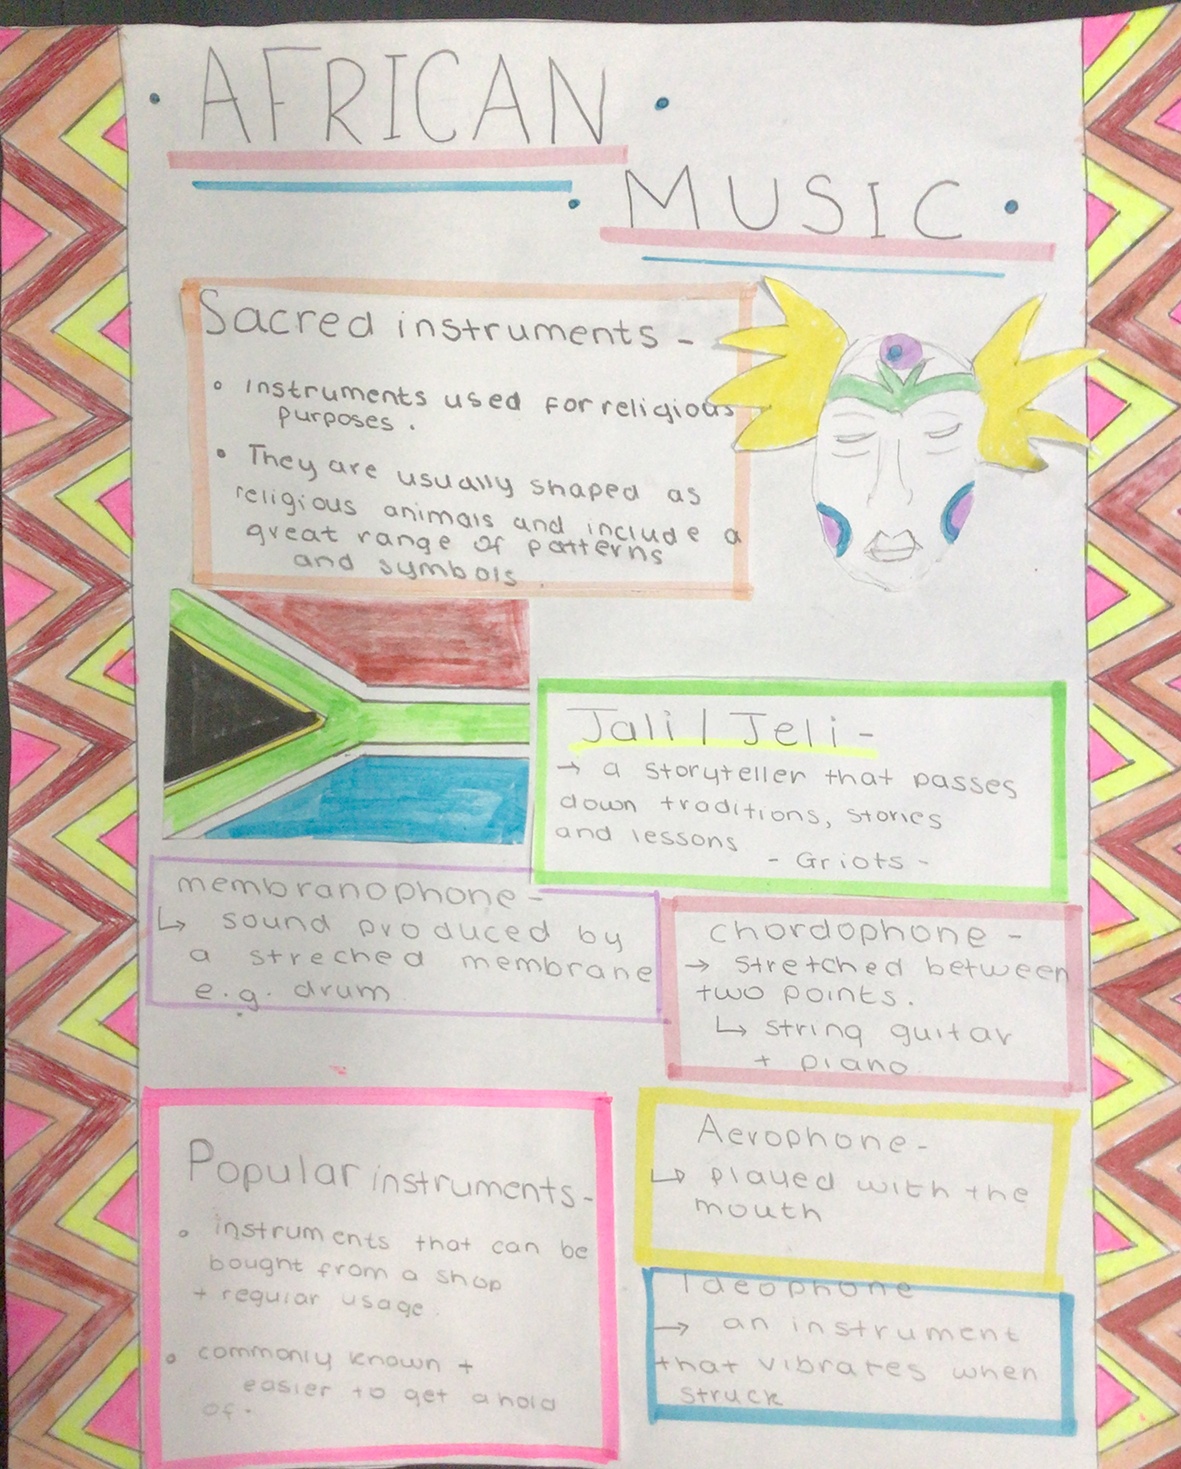 AFRICAN
MUSIC
Sacred instruments -
Instruments used for religious
purposes.
They are usually shaped as
religious animals and include a
great range of patterns
and symbols.
Jali / Jeli -
→ a storyteller that passes
down traditions, stories
and lessons
- Griots -
membranophone -
↳ sound produced by
a streched membrane
e.g. drum
chordophone -
→ stretched between
two points.
↳ string guitar
+ piano
Popular instruments -
instruments that can be
bought from a shop
+ regular usage.
commonly known +
easier to get a hold
of.
Aerophone -
↳ played with the
mouth
Ideophone
→ an instrument
that vibrates when
struck